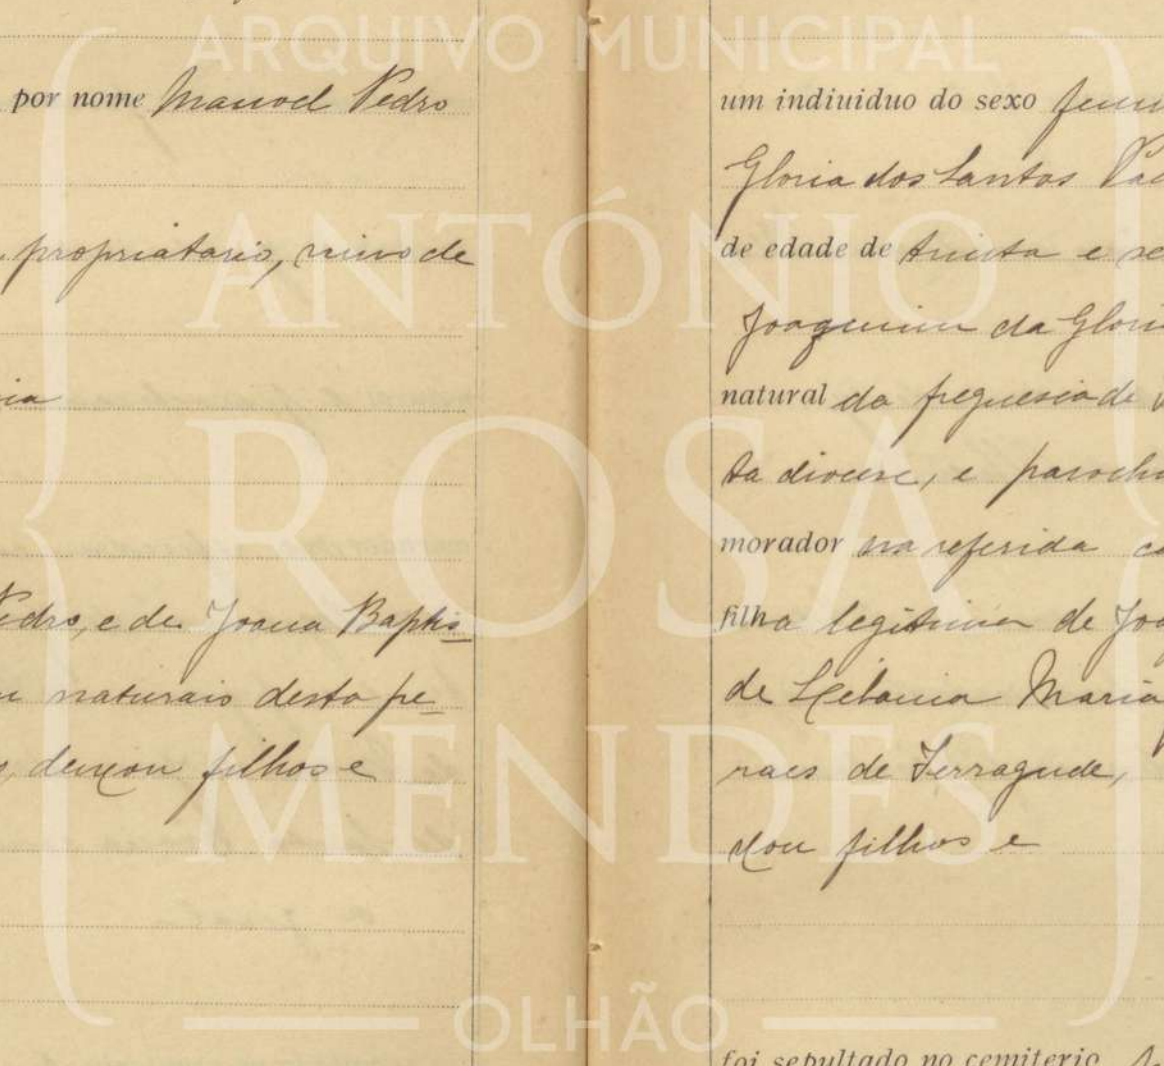 ARQUIVO MUNICIPAL
ANTÓNIO
ROSA
MENDES
OLHÃO
por nome Manoel Pedro
propriatario, viuvo de
edro, e de Joana Baptis
naturais desta fe
deixou filhos e
um indiuiduo do sexo
Gloria dos Santos
de edade de trinta e
Joaquim da Glori
natural da freguesia de
ta diocese, e parochi
morador na referida
filha legitima de Joa
de Maria
raes de Ferragude,
xou filhos e
foi sepultado no cemiterio